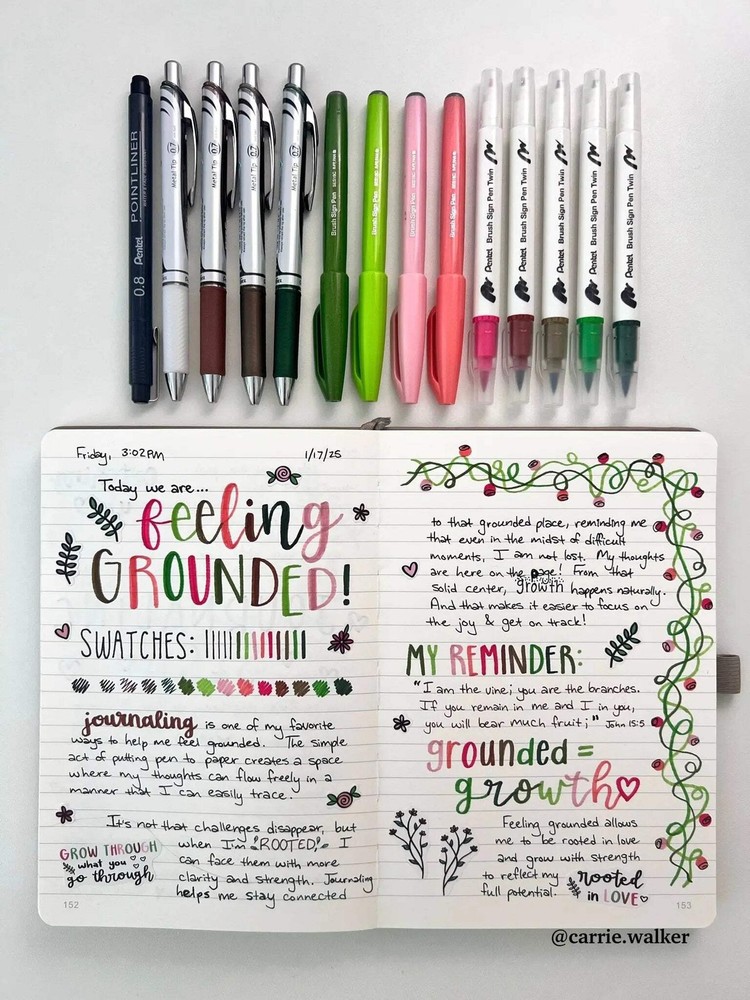 POINTLINER
Pentel
0.8
Metal Tip 0.7
Metal Tip 0.7
Metal Tip 0.7
Metal Tip 0.7
Brush Sign Pen
Brush Sign Pen
Brush Sign Pen
Brush Sign Pen
Pentel Brush Sign Pen Twin
Pentel Brush Sign Pen Twin
Pentel Brush Sign Pen Twin
Pentel Brush Sign Pen Twin
Pentel Brush Sign Pen Twin
Friday, 3:02PM 1/17/25
Today we are...
feeling
GROUNDED!
SWATCHES:
journaling is one of my favorite
ways to help me feel grounded. The simple
act of putting pen to paper creates a space
where my thoughts can flow freely in a
manner that I can easily trace.
It's not that challenges disappear, but
when I'm "ROOTED" I
can face them with more
clarity and strength. Journaling
helps me stay connected
GROW THROUGH
what you
go through
152
to that grounded place, reminding me
that even in the midst of difficult
moments, I am not lost. My thoughts
are here on the page! From that
solid center, growth happens naturally.
And that makes it easier to focus on
the joy & get on track!
MY REMINDER:
"I am the vine; you are the branches.
If you remain in me and I in you,
you will bear much fruit;" John 15:5
grounded =
growth
Feeling grounded allows
me to be rooted in love
and grow with strength
to reflect my
full potential.
rooted
in LOVE
153
@carrie.walker